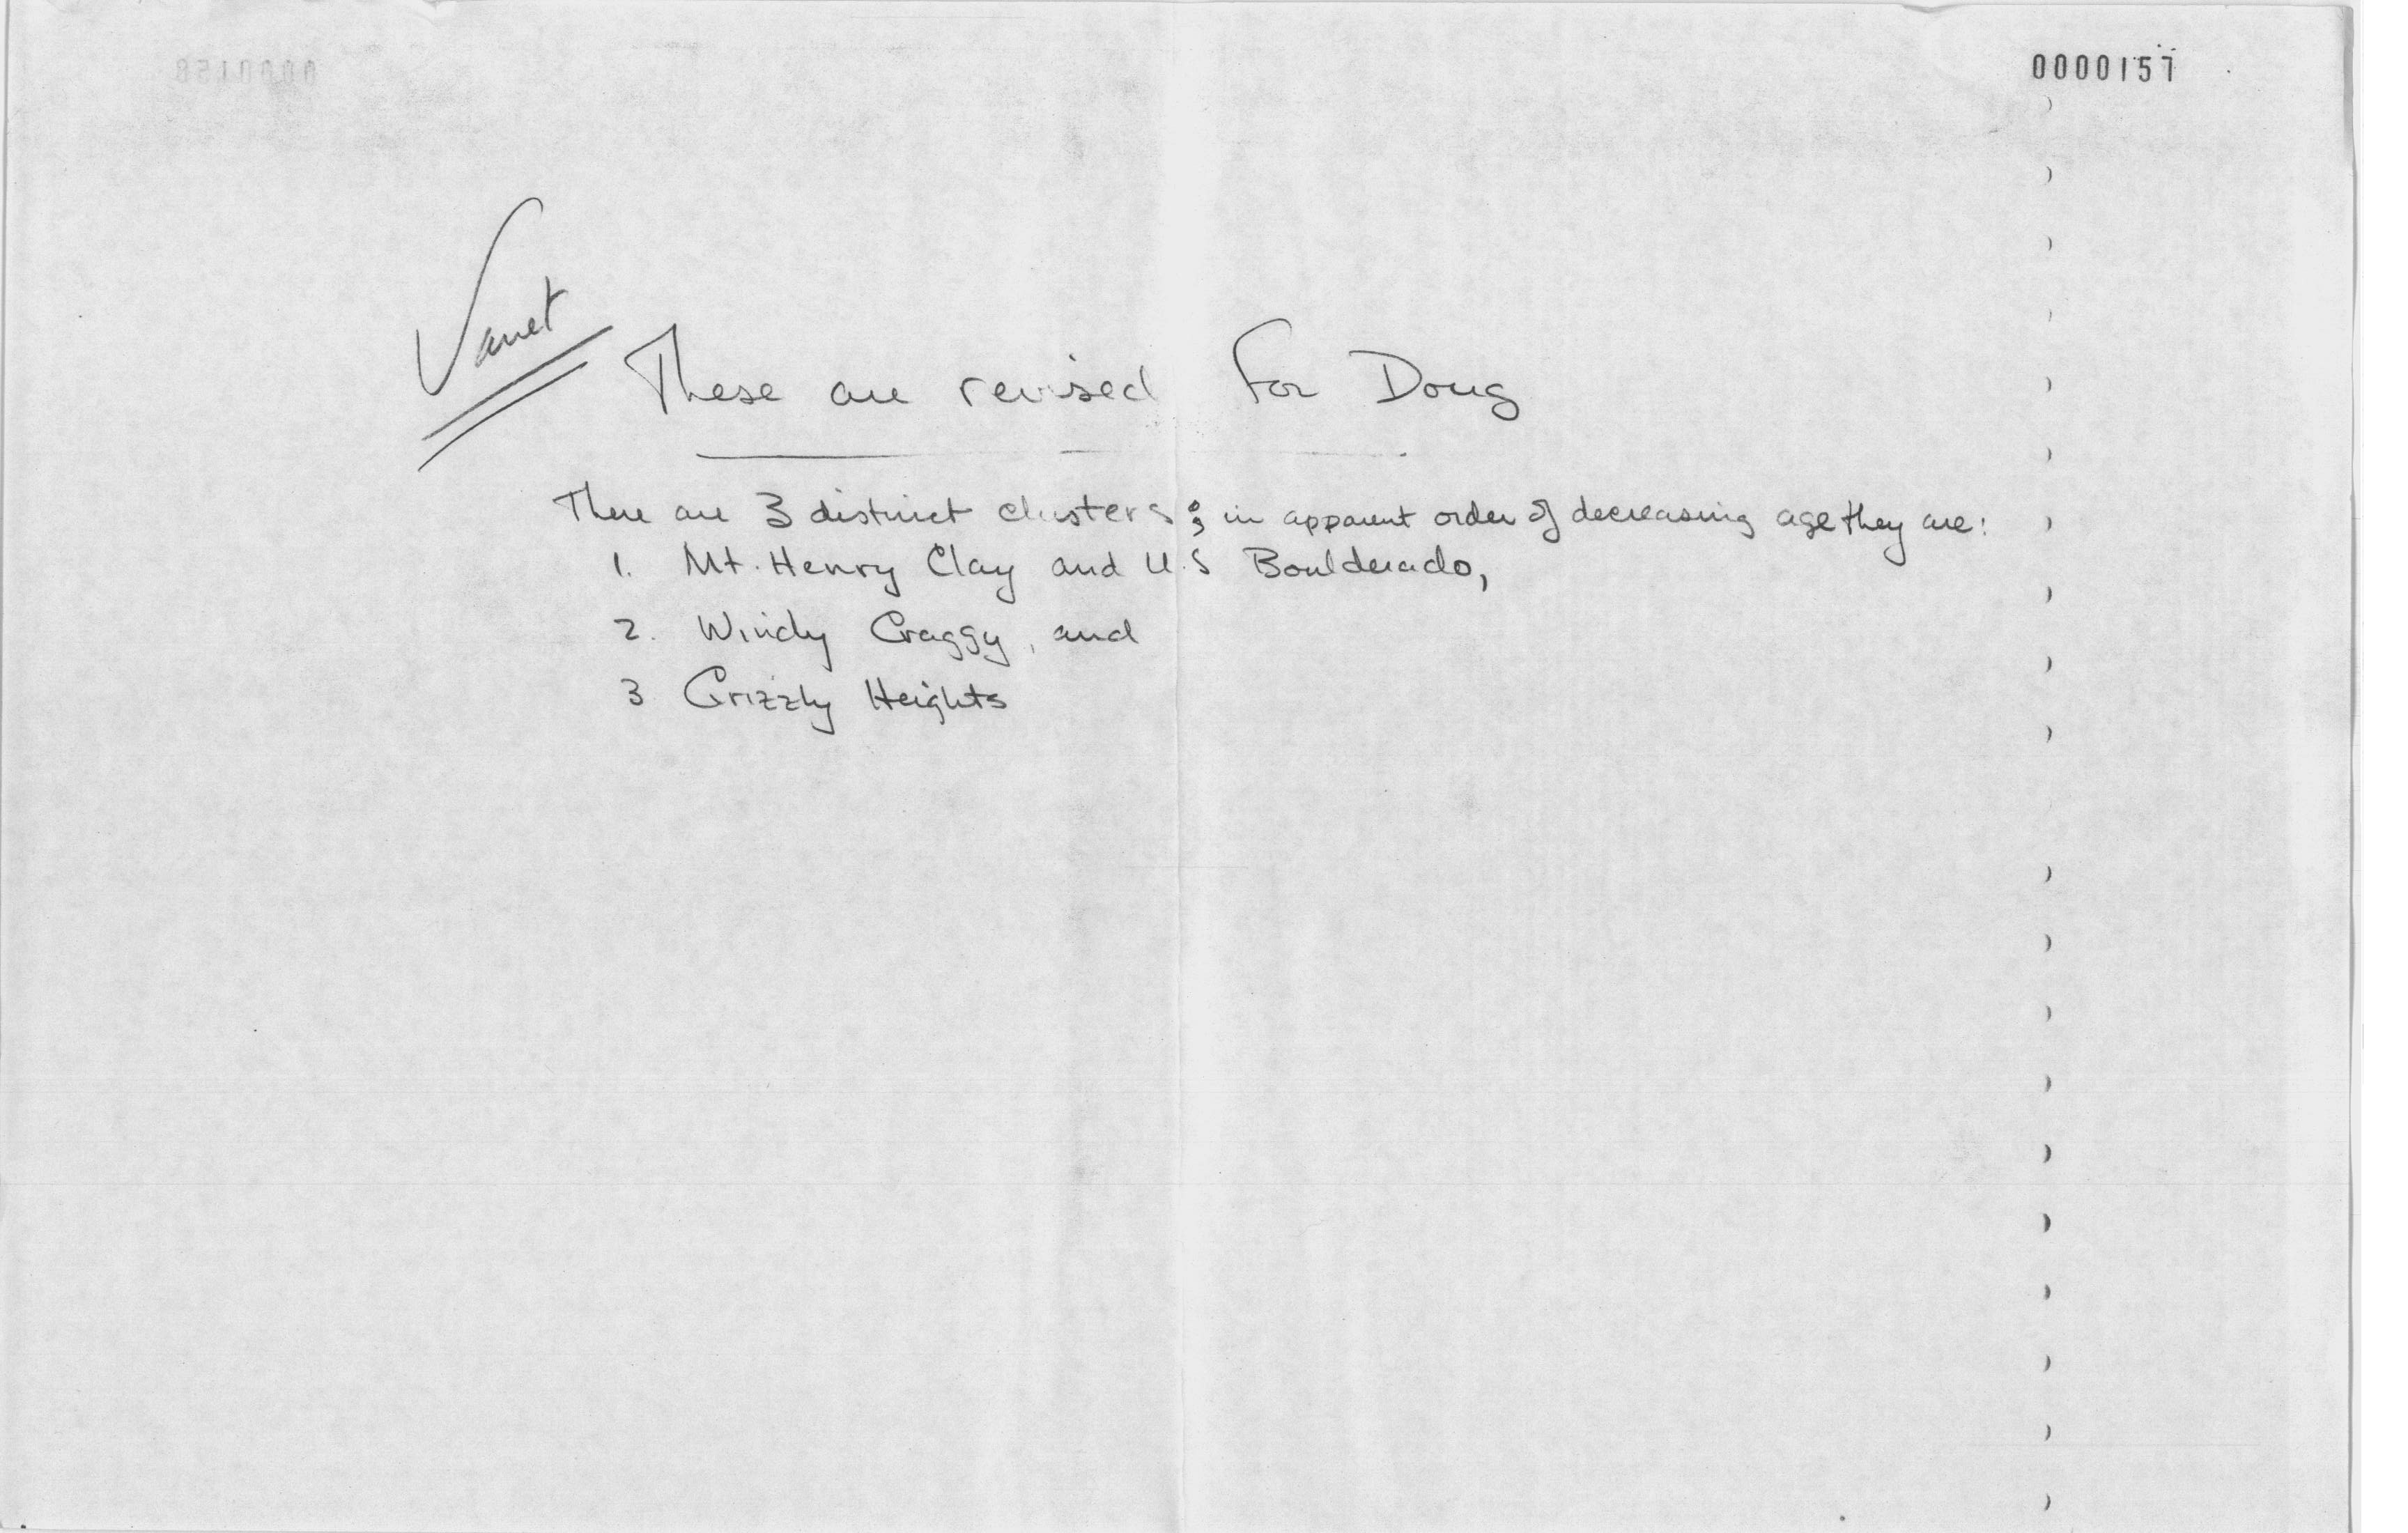 0000157
These are revised for Doug
There are 3 distinct clusters; in apparent order of decreasing age they are:
1. Mt. Henry Clay and U.S Boulderado,
2. Windy Craggy, and
3 Grizzly Heights